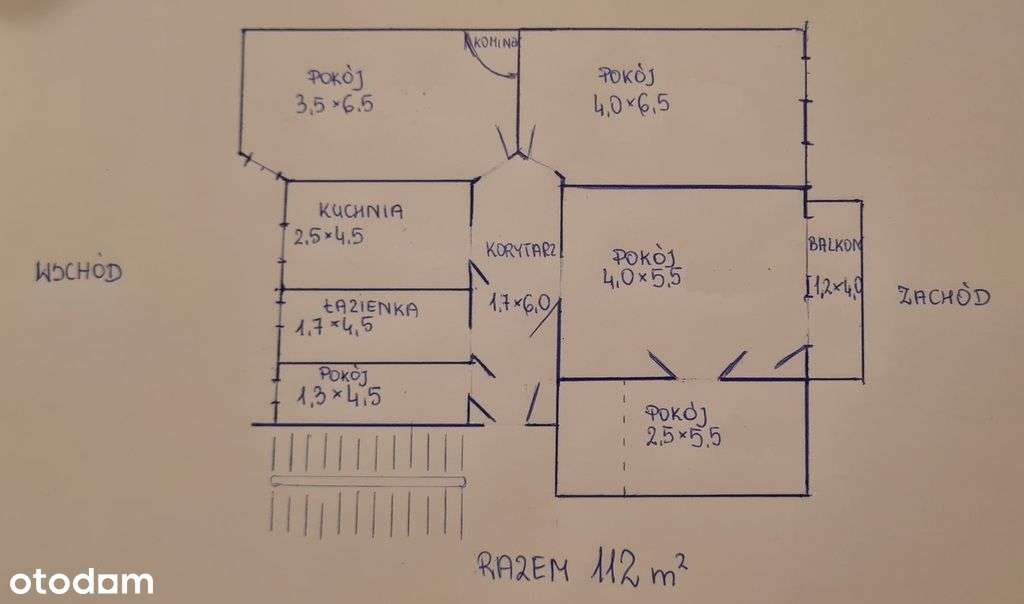 KOMINA
POKÓJ
3,5×6.5
POKÓJ
4,0×6,5
KUCHNIA
2,5×4.5
KORYTARZ
1,7×6,0
POKÓJ
4,0×5,5
BALKON
1,2×4,0
WSCHÓD
ZACHÓD
ŁAZIENKA
1,7×4,5
POKÓJ
1,3×4,5
POKÓJ
2,5×5,5
RAZEM 112 m²
otodom